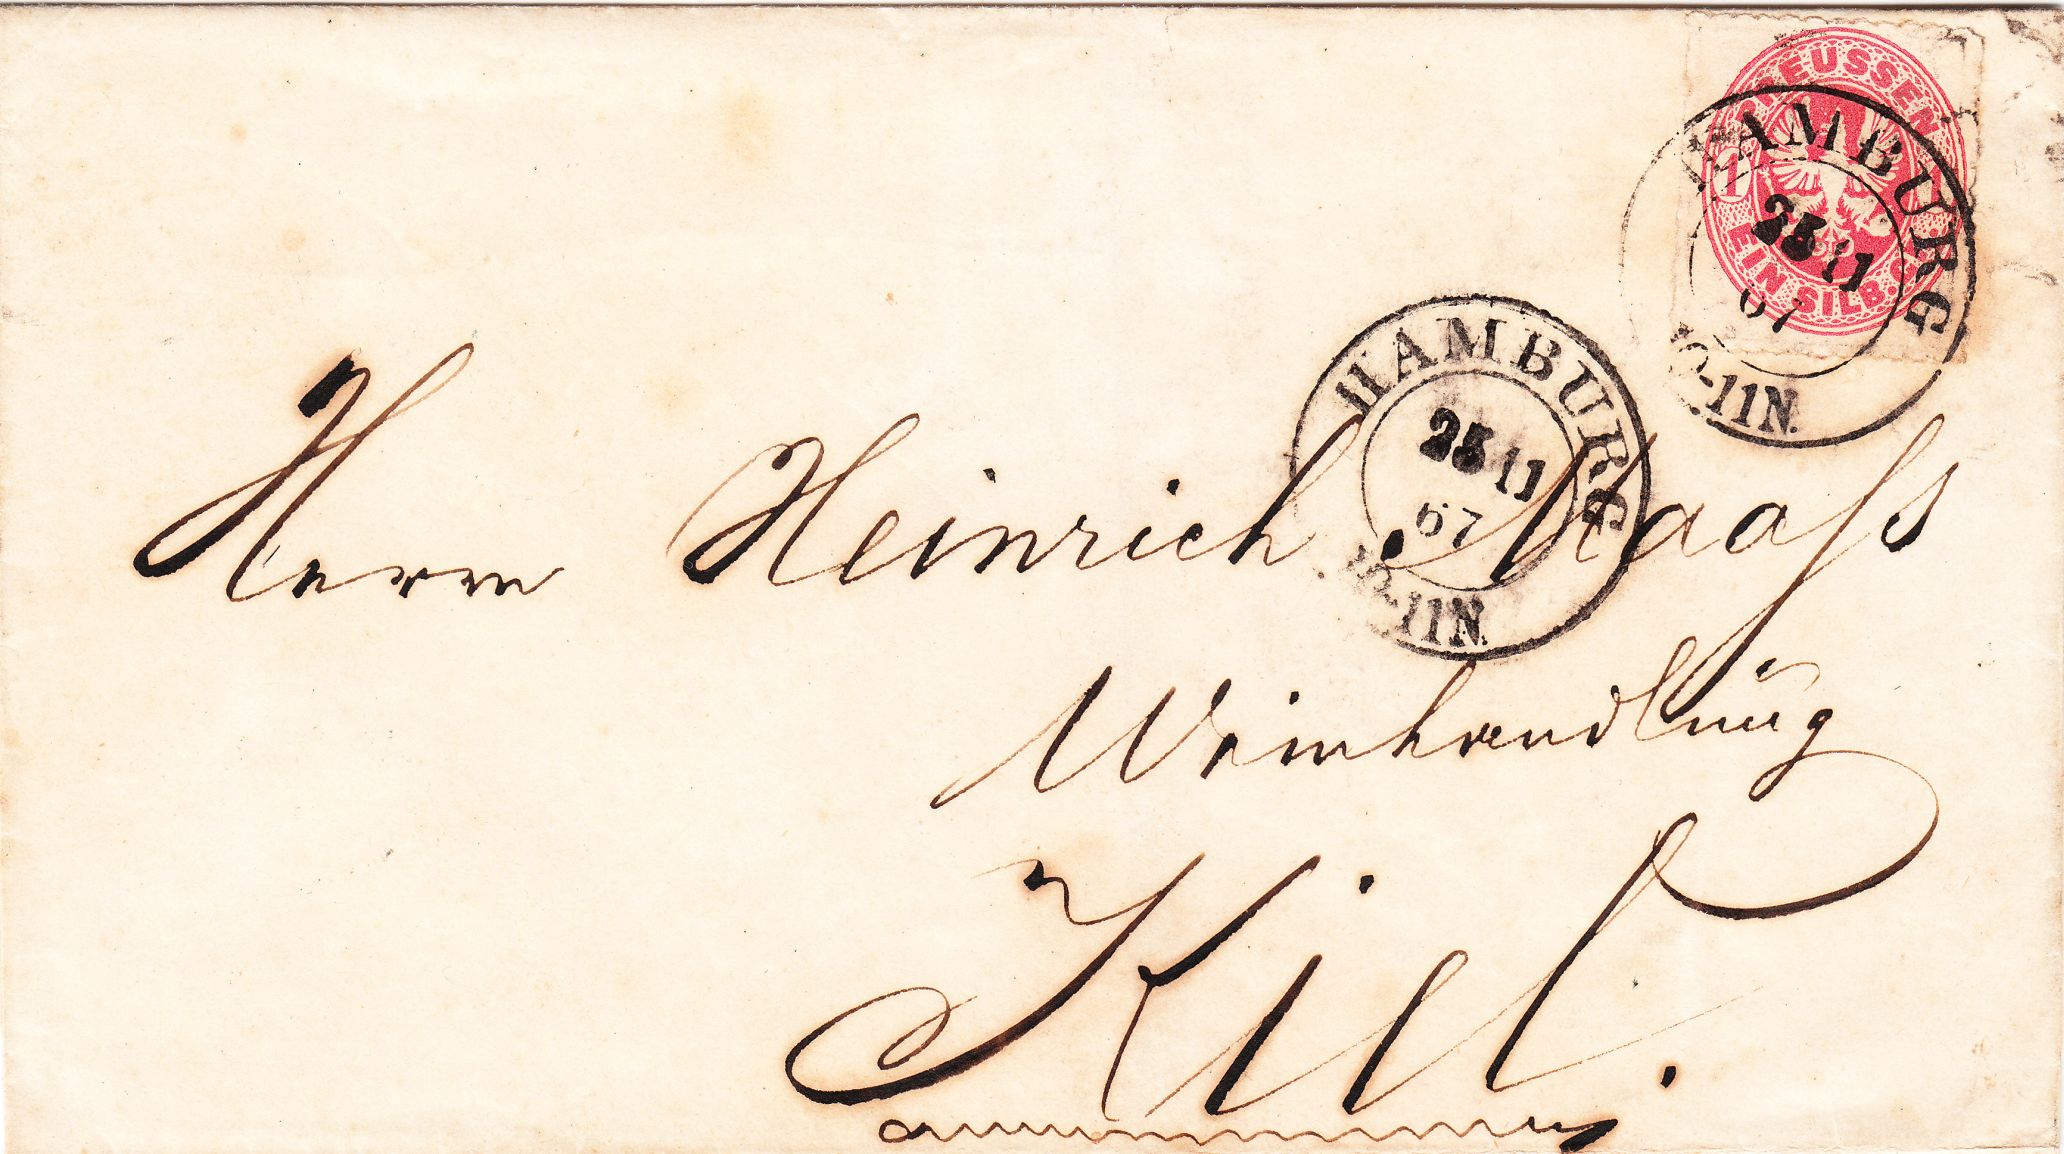 PREUSSEN
1
EIN SILB.
HAMBURG
25 11
67
10-11N.
HAMBURG
25 11
67
10-11N.
Herrn Heinrich Maaß
Weinhandlung
Kiel.